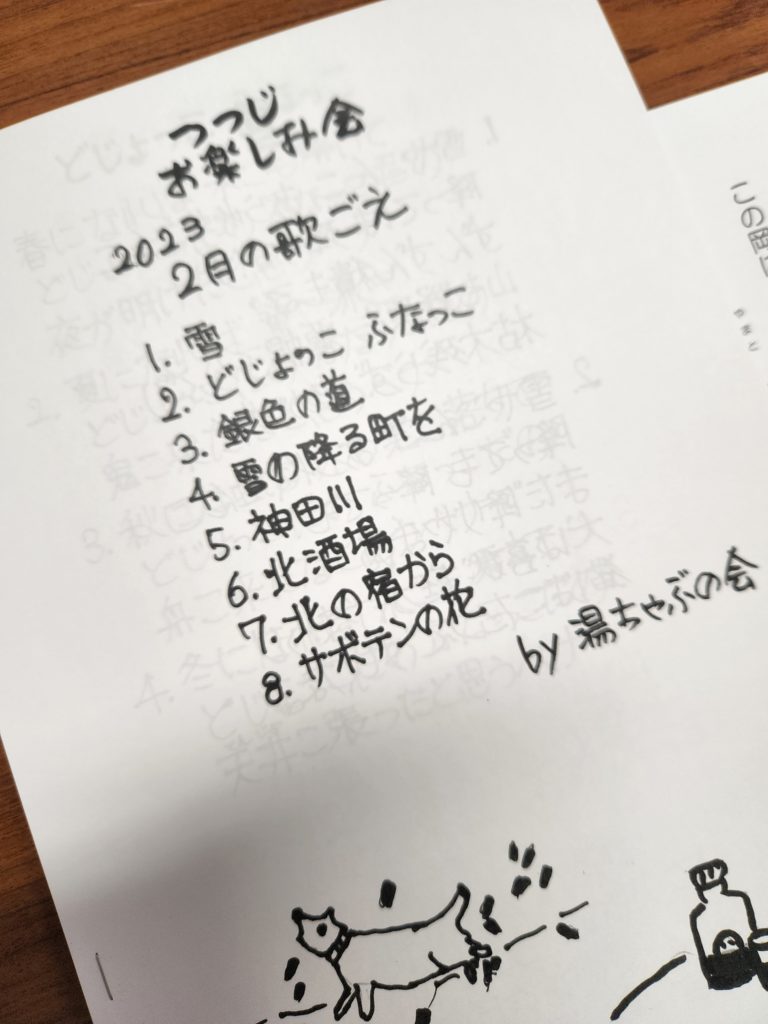 つつじ
お楽しみ会
2023
2月の歌ごえ
1. 雪
2. どじょっこ ふなっこ
3. 銀色の道
4. 雪の降る町を
5. 神田川
6. 北酒場
7. 北の宿から
8. サボテンの花
by 湯ちゃぶの会
この
やまと